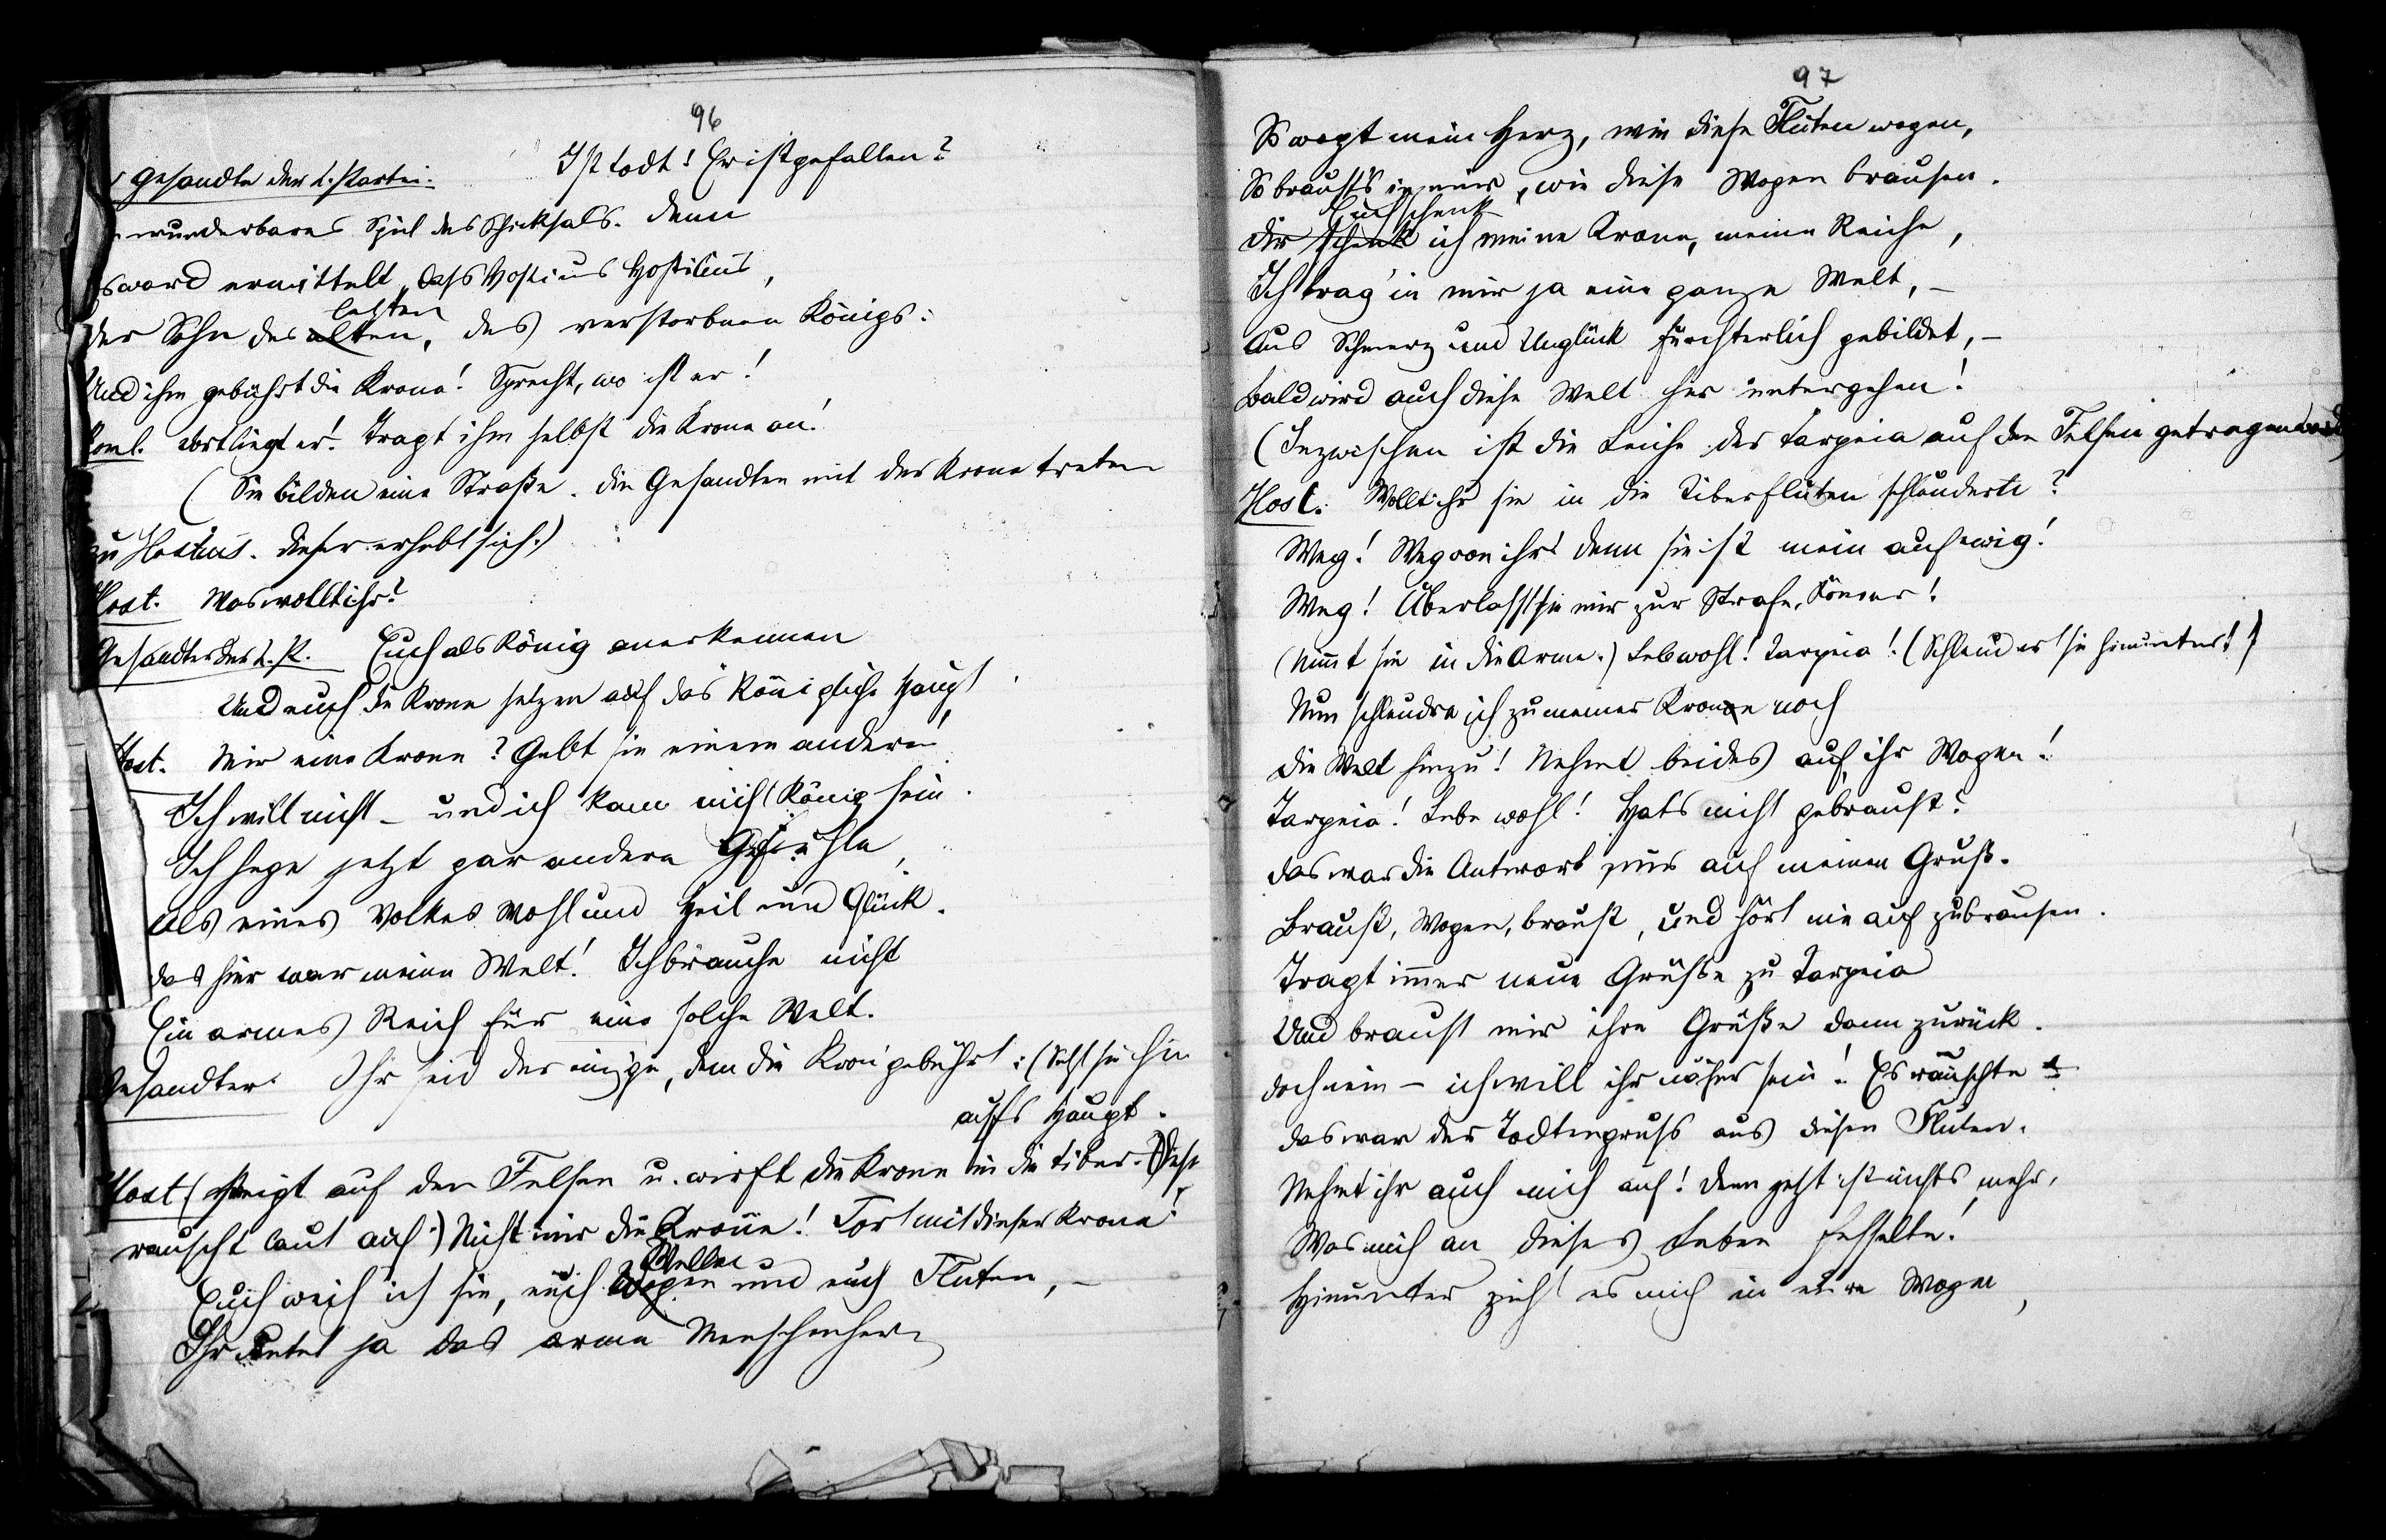 96
Gesandte der L. Partei. Ist todt! Er ist gefallen?
wunderbares Spiel des Schicksals. Denn
es ward ermittelt, dass Hostius Hostilius,
letzten
Der Sohn des alten, des verstorbnen Königs:
Und ihm gebührt die Krone! Sprecht, wo ist er!
Poml. Dort liegt er! Tragt ihm selbst die Krone an!
(Sie bilden eine Straße. Die Gesandten mit der Krone treten
zu Hostius. Dieser erhebt sich.)
Host. Was wollt ihr?
Gesandter der L. P. Euch als König anerkennen
Und euch die Krone setzen auf das königliche Haupt.
Host. Mir eine Krone? Gebt sie einem andern!
Ich will nicht – und ich kann nicht König sein.
Ich hege jetzt gar andere Gefühle,
Als eines Volkes Wohl und Heil und Glück.
Das hier war meine Welt! Ich brauche nicht
Ein armes Reich für eine solche Welt.
Gesandter. Ihr seid der einzge, dem die Kron gebührt: (Setzt sie ihm
aufs Haupt.
Host (steigt auf den Felsen u. wirft die Krone in die Tiber. Diese
rauscht laut auf.) Nicht mir die Krone! Fort mit dieser Krone!
Wellen
Euch weih ich sie, euch Wogen und euch Fluten, –
Ihr deutet ja das arme Menschenherz
97
So wogt mein Herz, wie diese Fluten wogen,
So braust's in mir, wie diese Wogen brausen.
Euch schenk
Dir schenk ich meine Krone, meine Reiche,
Ich trag' in mir ja eine ganze Welt, –
Aus Schmerz und Unglück fürchterlich gebildet, –
Bald wird auch diese Welt hier untergehen!
(Inzwischen ist die Leiche der Tarpeia auf den Felsen getragen word)
Host. Wollt ihr sie in die Tiberfluten schleudern?
Weg! Weg von ihr! denn sie ist mein auf ewig!
Weg! Überlasst sie mir zur Strafe, Römer!
(Nimmt sie in die Arme.) Leb wohl! Tarpeia! (Schleudert sie hinunter!)
Nun schleudre ich zu meiner Krone noch
Die Welt hinzu! Nehmt beides auf, ihr Wogen!
Tarpeia! Lebe wohl! Hat's nicht gebraust?
Das war die Antwort mir auf meinen Gruß.
Braust, Wogen, braust, und hört nie auf zu brausen.
Tragt immer neue Grüße zu Tarpeia
Und braust mir ihre Grüße dann zurück.
Doch nein – ich will ihr näher sein! Es rauschte
Das war der Todtengruß aus diesen Fluten.
Nehmt ihr auch mich auf! Denn jetzt ist nichts mehr,
Was mich an dieses Leben fesselte!
Hinunter zieht es mich in eure Wogen,